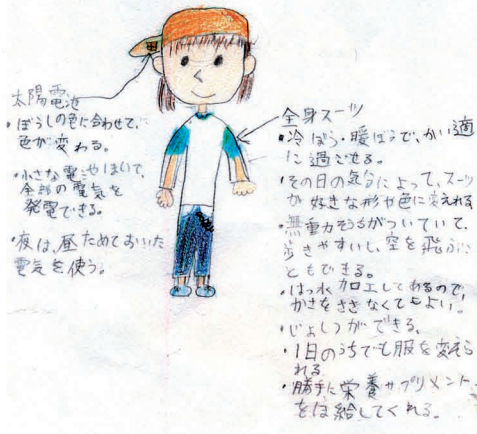 太陽電池
・ぼうしの色に合わせて、
色が変わる。
・小さな電지やはいて、
全部の電気を
発電できる。
・夜は、昼ためておいた
電気を使う。
全身スーツ
・冷ぼう・暖ぼうで、かい適
に過ごせる。
・その日の気分によって、スーツ
が好きな形や色に変えれる
・無重力そうちがついていて、
歩きやすいし、空を飛ぶこ
ともできる。
・はっ水加工してあるので、
かさをささなくてもよい。
・じょしつができる、
・1日のうちでも服を変えら
れる
・勝手に栄養サプリメント
をほ給してくれる。